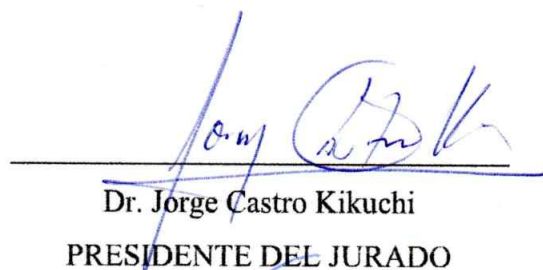 Dr. Jorge Castro Kikuchi
PRESIDENTE DEL JURADO